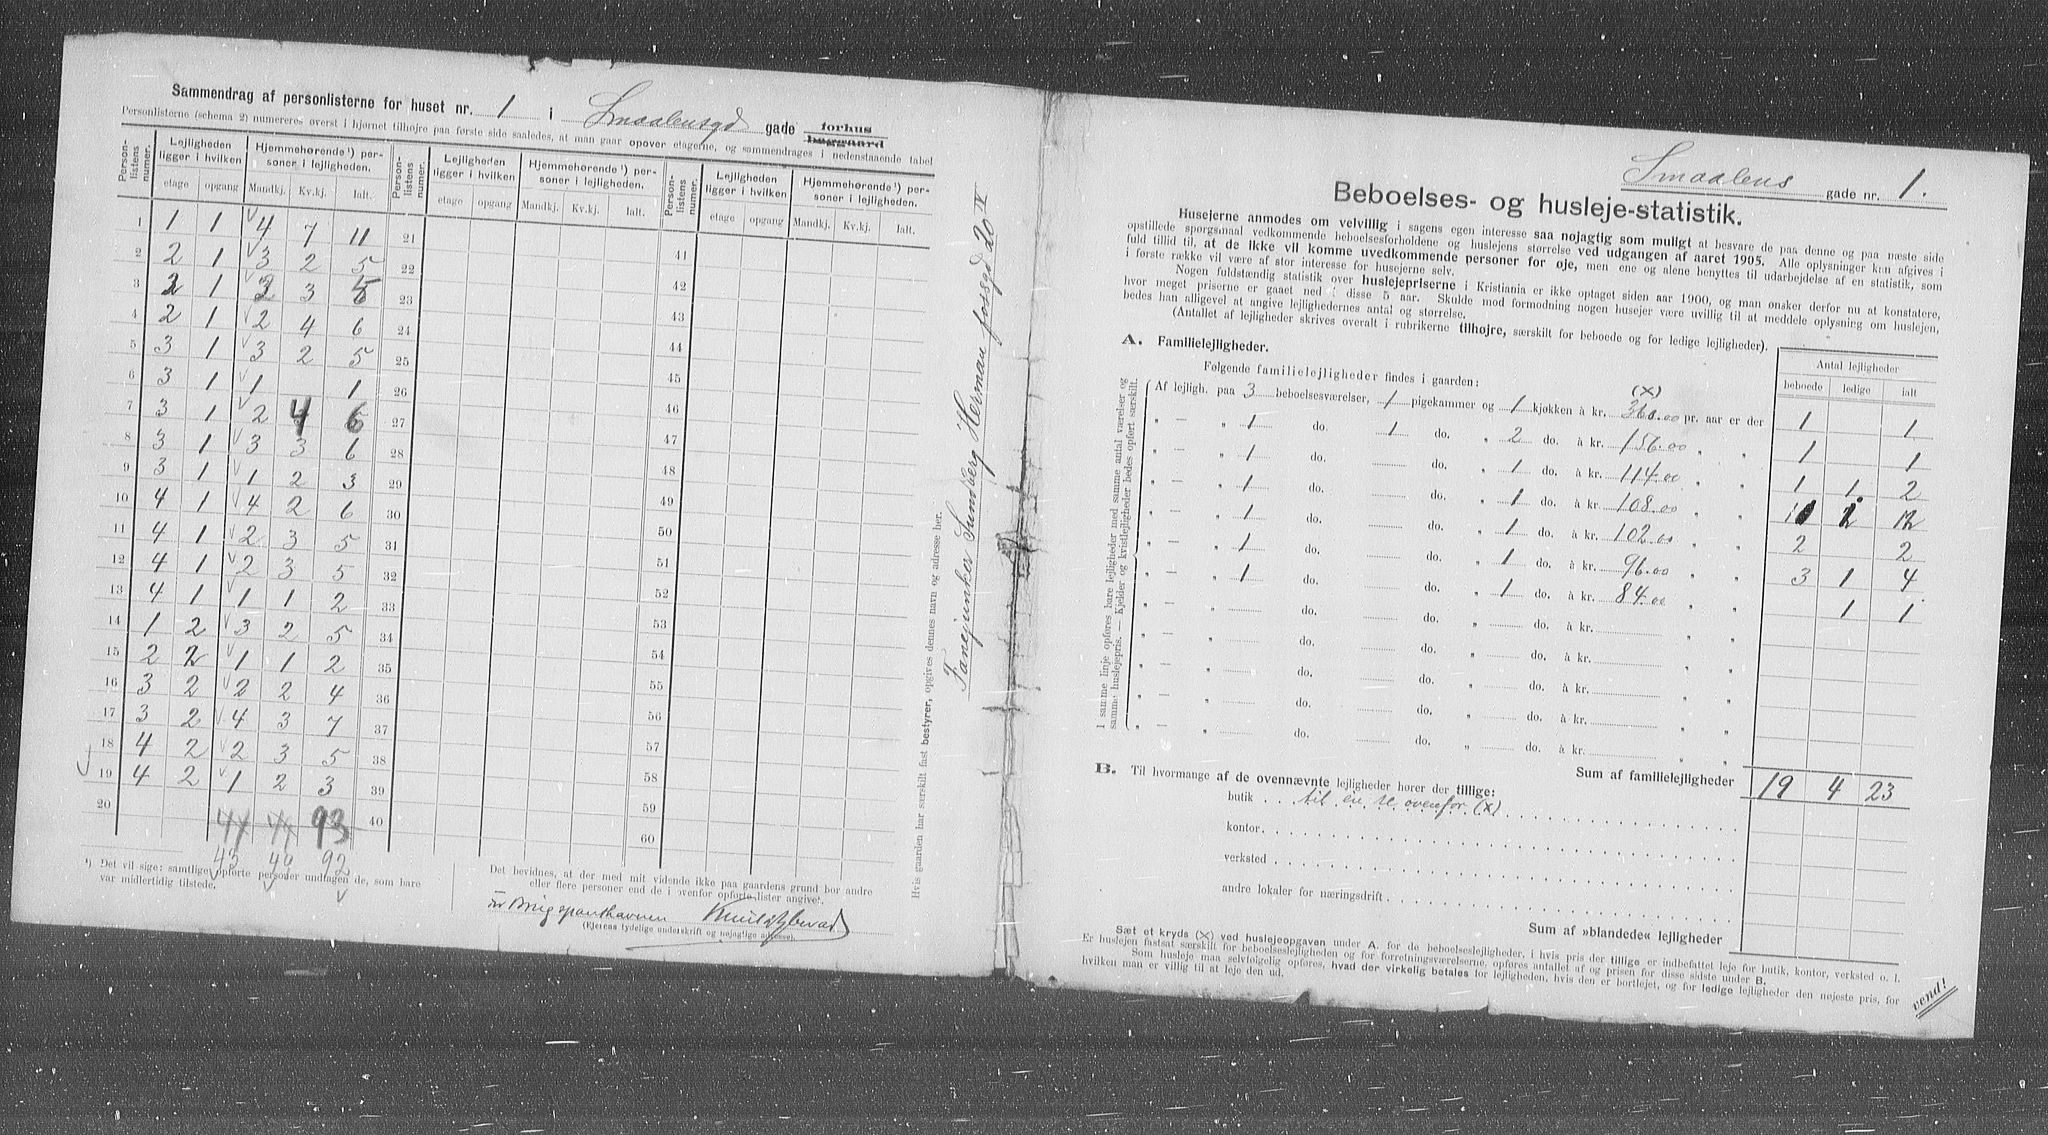 Sammendrag af personlisterne for huset nr. 1 i Smaalensgd gade forhus baggaard
Personlisterne (schema 2) numereres øverst i hjørnet tilhøjre paa første side saaledes, at man gaar opover etagerne, og sammendrages i nedenstaaende tabel
Person-listens nummer. Lejligheden ligger i hvilken Hjemmehørende¹) personer i lejligheden. Person-listens nummer. Lejligheden ligger i hvilken Hjemmehørende¹) personer i lejligheden. Person-listens nummer. Lejligheden ligger i hvilken Hjemmehørende¹) personer i lejligheden.
etage opgang Mandkj. Kv.kj. Ialt. etage opgang Mandkj. Kv.kj. Ialt. etage opgang Mandkj. Kv.kj. Ialt.
1 1 1 4 7 11 21 41
2 2 1 3 2 5 22 42
3 2 1 2 3 5 23 43
4 2 1 2 4 6 24 44
5 3 1 3 2 5 25 45
6 3 1 1 1 26 46
7 3 1 2 4 6 27 47
8 3 1 3 3 6 28 48
9 3 1 1 2 3 29 49
10 4 1 4 2 6 30 50
11 4 1 2 3 5 31 51
12 4 1 2 3 5 32 52
13 4 1 1 1 2 33 53
14 1 2 3 2 5 34 54
15 2 2 1 1 2 35 55
16 3 2 2 2 4 36 56
17 3 2 4 3 7 37 57
18 4 2 2 3 5 38 58
19 4 2 1 2 3 39 59
20 93 40 60
43 49 92
¹) Det vil sige: samtlige opførte personer undtagen de, som bare var midlertidig tilstede.
Det bevidnes, at der med mit vidende ikke paa gaardens grund bor andre eller flere personer end de i ovenfor opførte lister angivet.
(Ejerens tydelige underskrift og nøjagtige adresse).
Hvis gaarden har særskilt fast bestyrer, opgives dennes navn og adresse her.
Fanejunker Sundberg Herman fossgd 20 IV
Smaalens gade nr. 1.
Beboelses- og husleje-statistik.
Husejerne anmodes om velvillig i sagens egen interesse saa nøjagtig som muligt at besvare de paa denne og paa næste side
opstillede spørgsmaal vedkommende beboelsesforholdene og huslejens størrelse ved udgangen af aaret 1905. Alle oplysninger kan afgives i
fuld tillid til, at de ikke vil komme uvedkommende personer for øje, men ene og alene benyttes til udarbejdelse af en statistik, som
i første række vil være af stor interesse for husejerne selv.
Nogen fuldstændig statistik over huslejepriserne i Kristiania er ikke optaget siden aar 1900, og man ønsker derfor nu at konstatere,
hvor meget priserne er gaaet ned i disse 5 aar. Skulde mod formodning nogen husejer være uvillig til at meddele oplysning om huslejen,
bedes han alligevel at angive lejlighedernes antal og størrelse.
(Antallet af lejligheder skrives overalt i rubrikerne tilhøjre, særskilt for beboede og for ledige lejligheder).
A. Familielejligheder.
Antal lejligheder
beboede ledige ialt
Følgende familielejligheder findes i gaarden: (X)
I samme linje opføres bare lejligheder med samme antal værelser og samme huslejepris. — Kjelder og kvistlejligheder bedes opført særskilt.
Af lejligh. paa 3 beboelsesværelser, 1 pigekammer og 1 kjøkken à kr. 360.00 pr. aar er der 1 1
" — " 1 do. 1 do. " 2 do. à kr. 156.00 " " 1 1
" — " 1 do. do. " 1 do. à kr. 114.00 " " 1 1 2
" — " 1 do. do. " 1 do. à kr. 108.00 " " 12
" — " 1 do. do. " 1 do. à kr. 102.00 " " 2 2
" — " 1 do. do. " 1 do. à kr. 96.00 " " 3 1 4
" — " 1 do. do. " 1 do. à kr. 84.00 " " 1 1
" — " do. do. " do. à kr. " "
" — " do. do. " do. à kr. " "
" — " do. do. " do. à kr. " "
" — " do. do. " do. à kr. " "
" — " do. do. " do. à kr. " "
Sum af familielejligheder 19 4 23
B. Til hvormange af de ovennævnte lejligheder hører der tillige:
butik . . til en se ovenfor (X)
kontor
verksted
andre lokaler for næringsdrift
Sum af »blandede« lejligheder
Sæt et kryds (X) ved huslejeopgaven under A. for de beboelseslejligheder, i hvis pris der tillige er indbefattet leje for butik, kontor, verksted o. l.
Er huslejen fastsat særskilt for beboelseslejligheden og for forretningsværelserne, opføres antallet af og prisen for disse sidste under B.
Som husleje maa selvfølgelig opføres, hvad der virkelig betales for lejligheden, hvis den er bortlejet, og for ledige lejligheder den nøjeste pris, for
hvilken man er villig til at leje den ud.
vend!